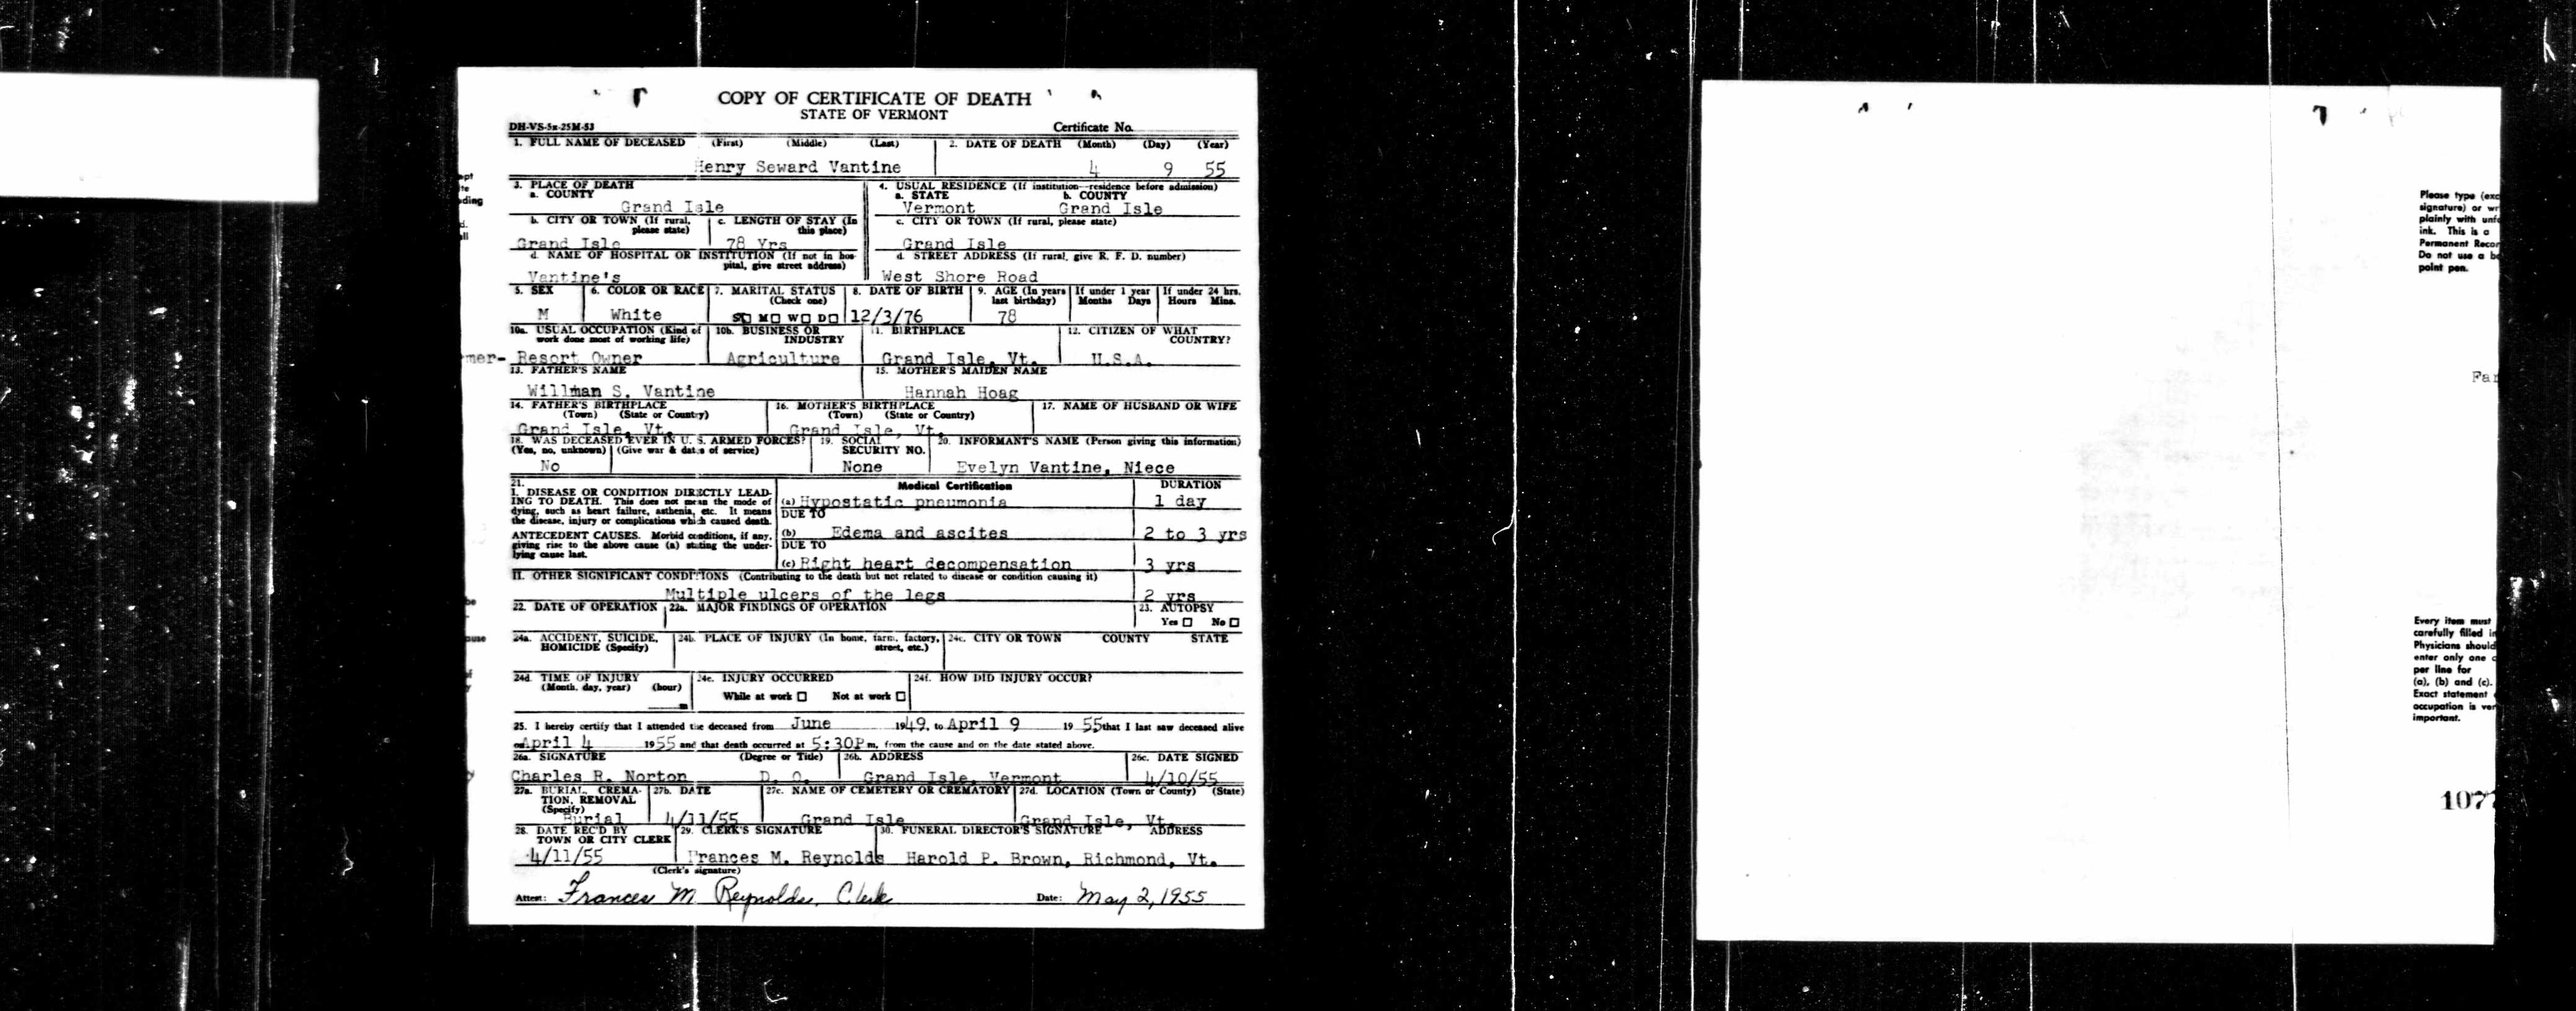 COPY OF CERTIFICATE OF DEATH
STATE OF VERMONT
DH-VS-5x-25M-53 Certificate No.
1. FULL NAME OF DECEASED (First) (Middle) (Last) 2. DATE OF DEATH (Month) (Day) (Year)
Henry Seward Vantine 4 9 55
3. PLACE OF DEATH 4. USUAL RESIDENCE (If institution--residence before admission)
a. COUNTY a. STATE b. COUNTY
Grand Isle Vermont Grand Isle
b. CITY OR TOWN (If rural, please state) c. LENGTH OF STAY (In this place) c. CITY OR TOWN (If rural, please state)
Grand Isle 78 Yrs Grand Isle
d. NAME OF HOSPITAL OR INSTITUTION (If not in hospital, give street address) d. STREET ADDRESS (If rural, give R. F. D. number)
Vantine's West Shore Road
5. SEX 6. COLOR OR RACE 7. MARITAL STATUS (Check one) 8. DATE OF BIRTH 9. AGE (In years last birthday) If under 1 year Months Days If under 24 hrs. Hours Mins.
M White S M W D 12/3/76 78
10a. USUAL OCCUPATION (Kind of work done most of working life) 10b. BUSINESS OR INDUSTRY 11. BIRTHPLACE 12. CITIZEN OF WHAT COUNTRY?
mer- Resort Owner Agriculture Grand Isle, Vt. U.S.A.
13. FATHER'S NAME 15. MOTHER'S MAIDEN NAME
Willman S. Vantine Hannah Hoag
14. FATHER'S BIRTHPLACE (Town) (State or Country) 16. MOTHER'S BIRTHPLACE (Town) (State or Country) 17. NAME OF HUSBAND OR WIFE
Grand Isle, Vt. Grand Isle, Vt.
18. WAS DECEASED EVER IN U. S. ARMED FORCES? 19. SOCIAL SECURITY NO. 20. INFORMANT'S NAME (Person giving this information)
(Yes, no, unknown) (Give war & dates of service)
No None Evelyn Vantine, Niece
21. Medical Certification DURATION
I. DISEASE OR CONDITION DIRECTLY LEADING TO DEATH. This does not mean the mode of dying, such as heart failure, asthenia, etc. It means the disease, injury or complications which caused death.
(a) Hypostatic pneumonia 1 day
DUE TO
ANTECEDENT CAUSES. Morbid conditions, if any, giving rise to the above cause (a) stating the underlying cause last.
(b) Edema and ascites 2 to 3 yrs
DUE TO
(c) Right heart decompensation 3 yrs
II. OTHER SIGNIFICANT CONDITIONS (Contributing to the death but not related to disease or condition causing it)
Multiple ulcers of the legs 2 yrs
22. DATE OF OPERATION 22a. MAJOR FINDINGS OF OPERATION 23. AUTOPSY
Yes No
24a. ACCIDENT, SUICIDE, HOMICIDE (Specify) 24b. PLACE OF INJURY (In home, farm, factory, street, etc.) 24c. CITY OR TOWN COUNTY STATE
24d. TIME OF INJURY (Month, day, year) (hour) m 24e. INJURY OCCURRED 24f. HOW DID INJURY OCCUR?
While at work Not at work
25. I hereby certify that I attended the deceased from June 1949, to April 9 1955 that I last saw deceased alive
on April 4 1955 and that death occurred at 5:30P m, from the cause and on the date stated above.
26a. SIGNATURE (Degree or Title) 26b. ADDRESS 26c. DATE SIGNED
Charles R. Norton D. O. Grand Isle, Vermont 4/10/55
27a. BURIAL, CREMATION, REMOVAL (Specify) 27b. DATE 27c. NAME OF CEMETERY OR CREMATORY 27d. LOCATION (Town or County) (State)
Burial 4/11/55 Grand Isle Grand Isle, Vt.
28. DATE REC'D BY TOWN OR CITY CLERK 29. CLERK'S SIGNATURE 30. FUNERAL DIRECTOR'S SIGNATURE ADDRESS
4/11/55 Frances M. Reynolds Harold P. Brown, Richmond, Vt.
(Clerk's signature)
Attest: Frances M Reynolds, Clerk Date: May 2, 1955
Please type (exc
signature) or wr
plainly with unf
ink. This is a
Permanent Recor
Do not use a b
point pen.
Far
Every item must
carefully filled in
Physicians should
enter only one c
per line for
(a), (b) and (c).
Exact statement
occupation is ver
important.
107